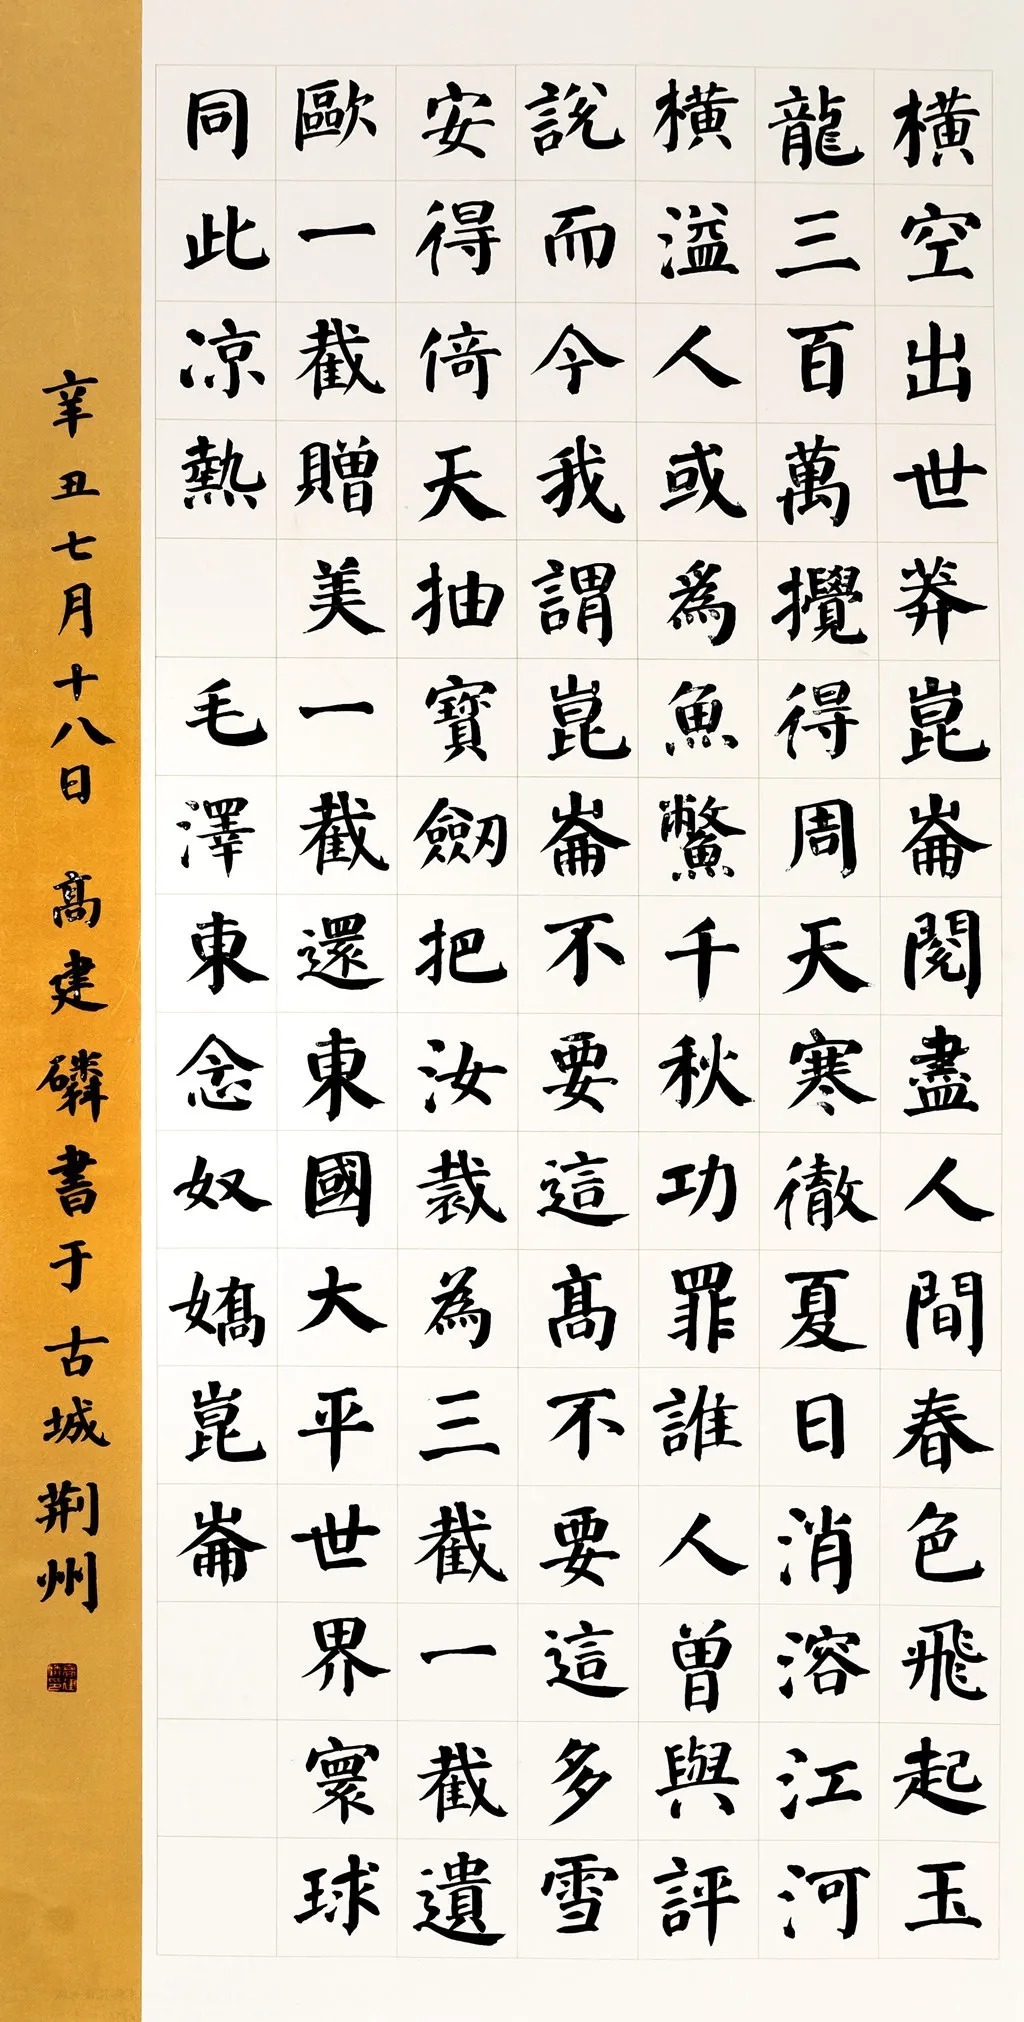 橫空出世莽崑崙閱盡人間春色飛起玉
龍三百萬攪得周天寒徹夏日消溶江河
橫溢人或為魚鱉千秋功罪誰人曾與評
說而今我謂崑崙不要這高不要這多雪
安得倚天抽寶劒把汝裁為三截一截遺
歐一截贈美一截還東國大平世界寰球
同此凉熱 毛澤東念奴嬌崑崙
辛丑七月十八日 高建磷書于古城荆州